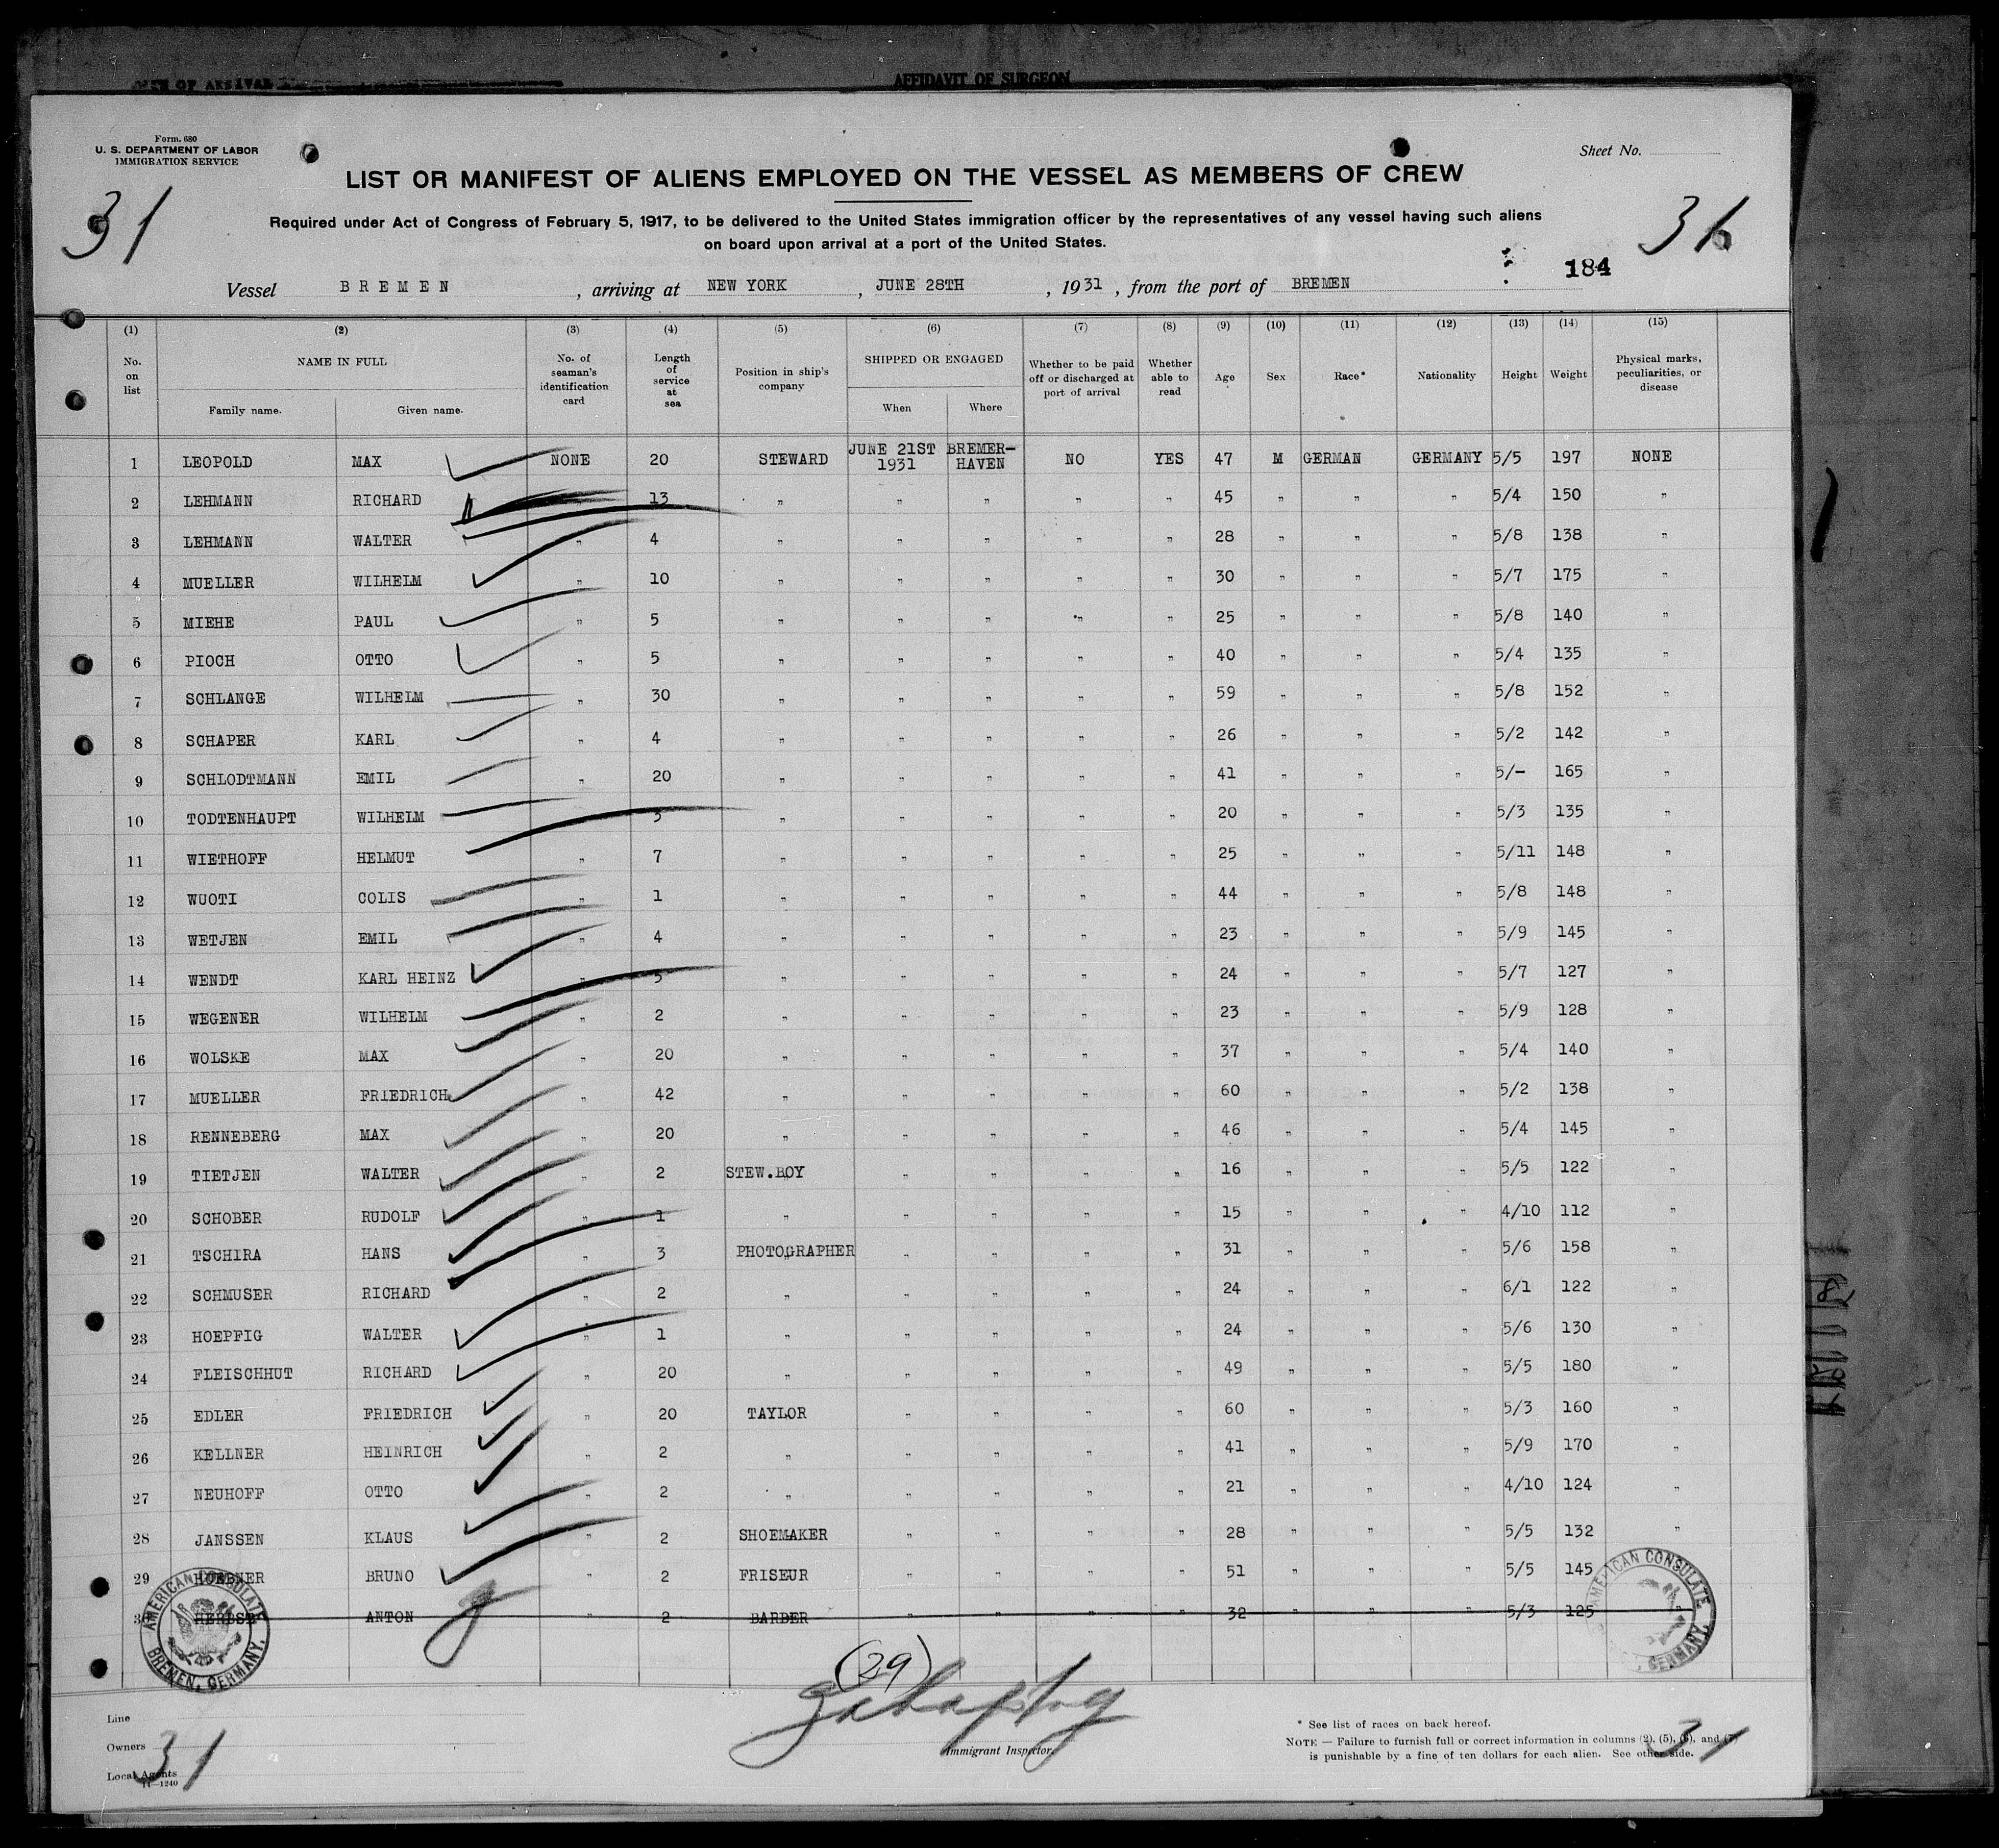 AFFIDAVIT OF SURGEON
Form. 680
U. S. DEPARTMENT OF LABOR
IMMIGRATION SERVICE
Sheet No.
LIST OR MANIFEST OF ALIENS EMPLOYED ON THE VESSEL AS MEMBERS OF CREW
31
31
Required under Act of Congress of February 5, 1917, to be delivered to the United States immigration officer by the representatives of any vessel having such aliens
on board upon arrival at a port of the United States.
184
Vessel BREMEN, arriving at NEW YORK, JUNE 28TH, 1931, from the port of BREMEN
(1) (2) (3) (4) (5) (6) (7) (8) (9) (10) (11) (12) (13) (14) (15)
No. on list NAME IN FULL Family name. Given name. No. of seaman's identification card Length of service at sea Position in ship's company SHIPPED OR ENGAGED When Where Whether to be paid off or discharged at port of arrival Whether able to read Age Sex Race* Nationality Height Weight Physical marks, peculiarities, or disease
1 LEOPOLD MAX NONE 20 STEWARD JUNE 21ST 1931 BREMER-HAVEN NO YES 47 M GERMAN GERMANY 5/5 197 NONE
2 LEHMANN RICHARD 13 " " " " " 45 " " " 5/4 150 "
3 LEHMANN WALTER " 4 " " " " " 28 " " " 5/8 138 "
4 MUELLER WILHELM " 10 " " " " " 30 " " " 5/7 175 "
5 MIEHE PAUL " 5 " " " " " 25 " " " 5/8 140 "
6 PIOCH OTTO " 5 " " " " " 40 " " " 5/4 135 "
7 SCHLANGE WILHELM " 30 " " " " " 59 " " " 5/8 152 "
8 SCHAPER KARL " 4 " " " " " 26 " " " 5/2 142 "
9 SCHLODTMANN EMIL " 20 " " " " " 41 " " " 5/- 165 "
10 TODTENHAUPT WILHELM 3 " " " " " 20 " " " 5/3 135 "
11 WIETHOFF HELMUT " 7 " " " " " 25 " " " 5/11 148 "
12 WUOTI COLIS " 1 " " " " " 44 " " " 5/8 148 "
13 WETJEN EMIL " 4 " " " " " 23 " " " 5/9 145 "
14 WENDT KARL HEINZ " 5 " " " " " 24 " " " 5/7 127 "
15 WEGENER WILHELM " 2 " " " " " 23 " " " 5/9 128 "
16 WOLSKE MAX " 20 " " " " " 37 " " " 5/4 140 "
17 MUELLER FRIEDRICH " 42 " " " " " 60 " " " 5/2 138 "
18 RENNEBERG MAX " 20 " " " " " 46 " " " 5/4 145 "
19 TIETJEN WALTER " 2 STEW.BOY " " " " 16 " " " 5/5 122 "
20 SCHOBER RUDOLF " 1 " " " " " 15 " " " 4/10 112 "
21 TSCHIRA HANS " 3 PHOTOGRAPHER " " " " 31 " " " 5/6 158 "
22 SCHMUSER RICHARD " 2 " " " " " 24 " " " 6/1 122 "
23 HOEPFIG WALTER " 1 " " " " " 24 " " " 5/6 130 "
24 FLEISCHHUT RICHARD " 20 " " " " " 49 " " " 5/5 180 "
25 EDLER FRIEDRICH " 20 TAYLOR " " " " 60 " " " 5/3 160 "
26 KELLNER HEINRICH " 2 " " " " " 41 " " " 5/9 170 "
27 NEUHOFF OTTO " 2 " " " " " 21 " " " 4/10 124 "
28 JANSSEN KLAUS " 2 SHOEMAKER " " " " 28 " " " 5/5 132 "
29 BRUNO " 2 FRISEUR " " " " 51 " " " 5/5 145
30 HERBST ANTON " 2 BARBER " " " " 32 " " " 5/3 125 "
AMERICAN CONSULATE BREMEN, GERMANY.
AMERICAN CONSULATE GERMANY.
(29)
Line
Owners
Local Agents
14—1240
31
Immigrant Inspector.
* See list of races on back hereof.
NOTE — Failure to furnish full or correct information in columns (2), (5), (6), and (7)
is punishable by a fine of ten dollars for each alien. See other side.
31